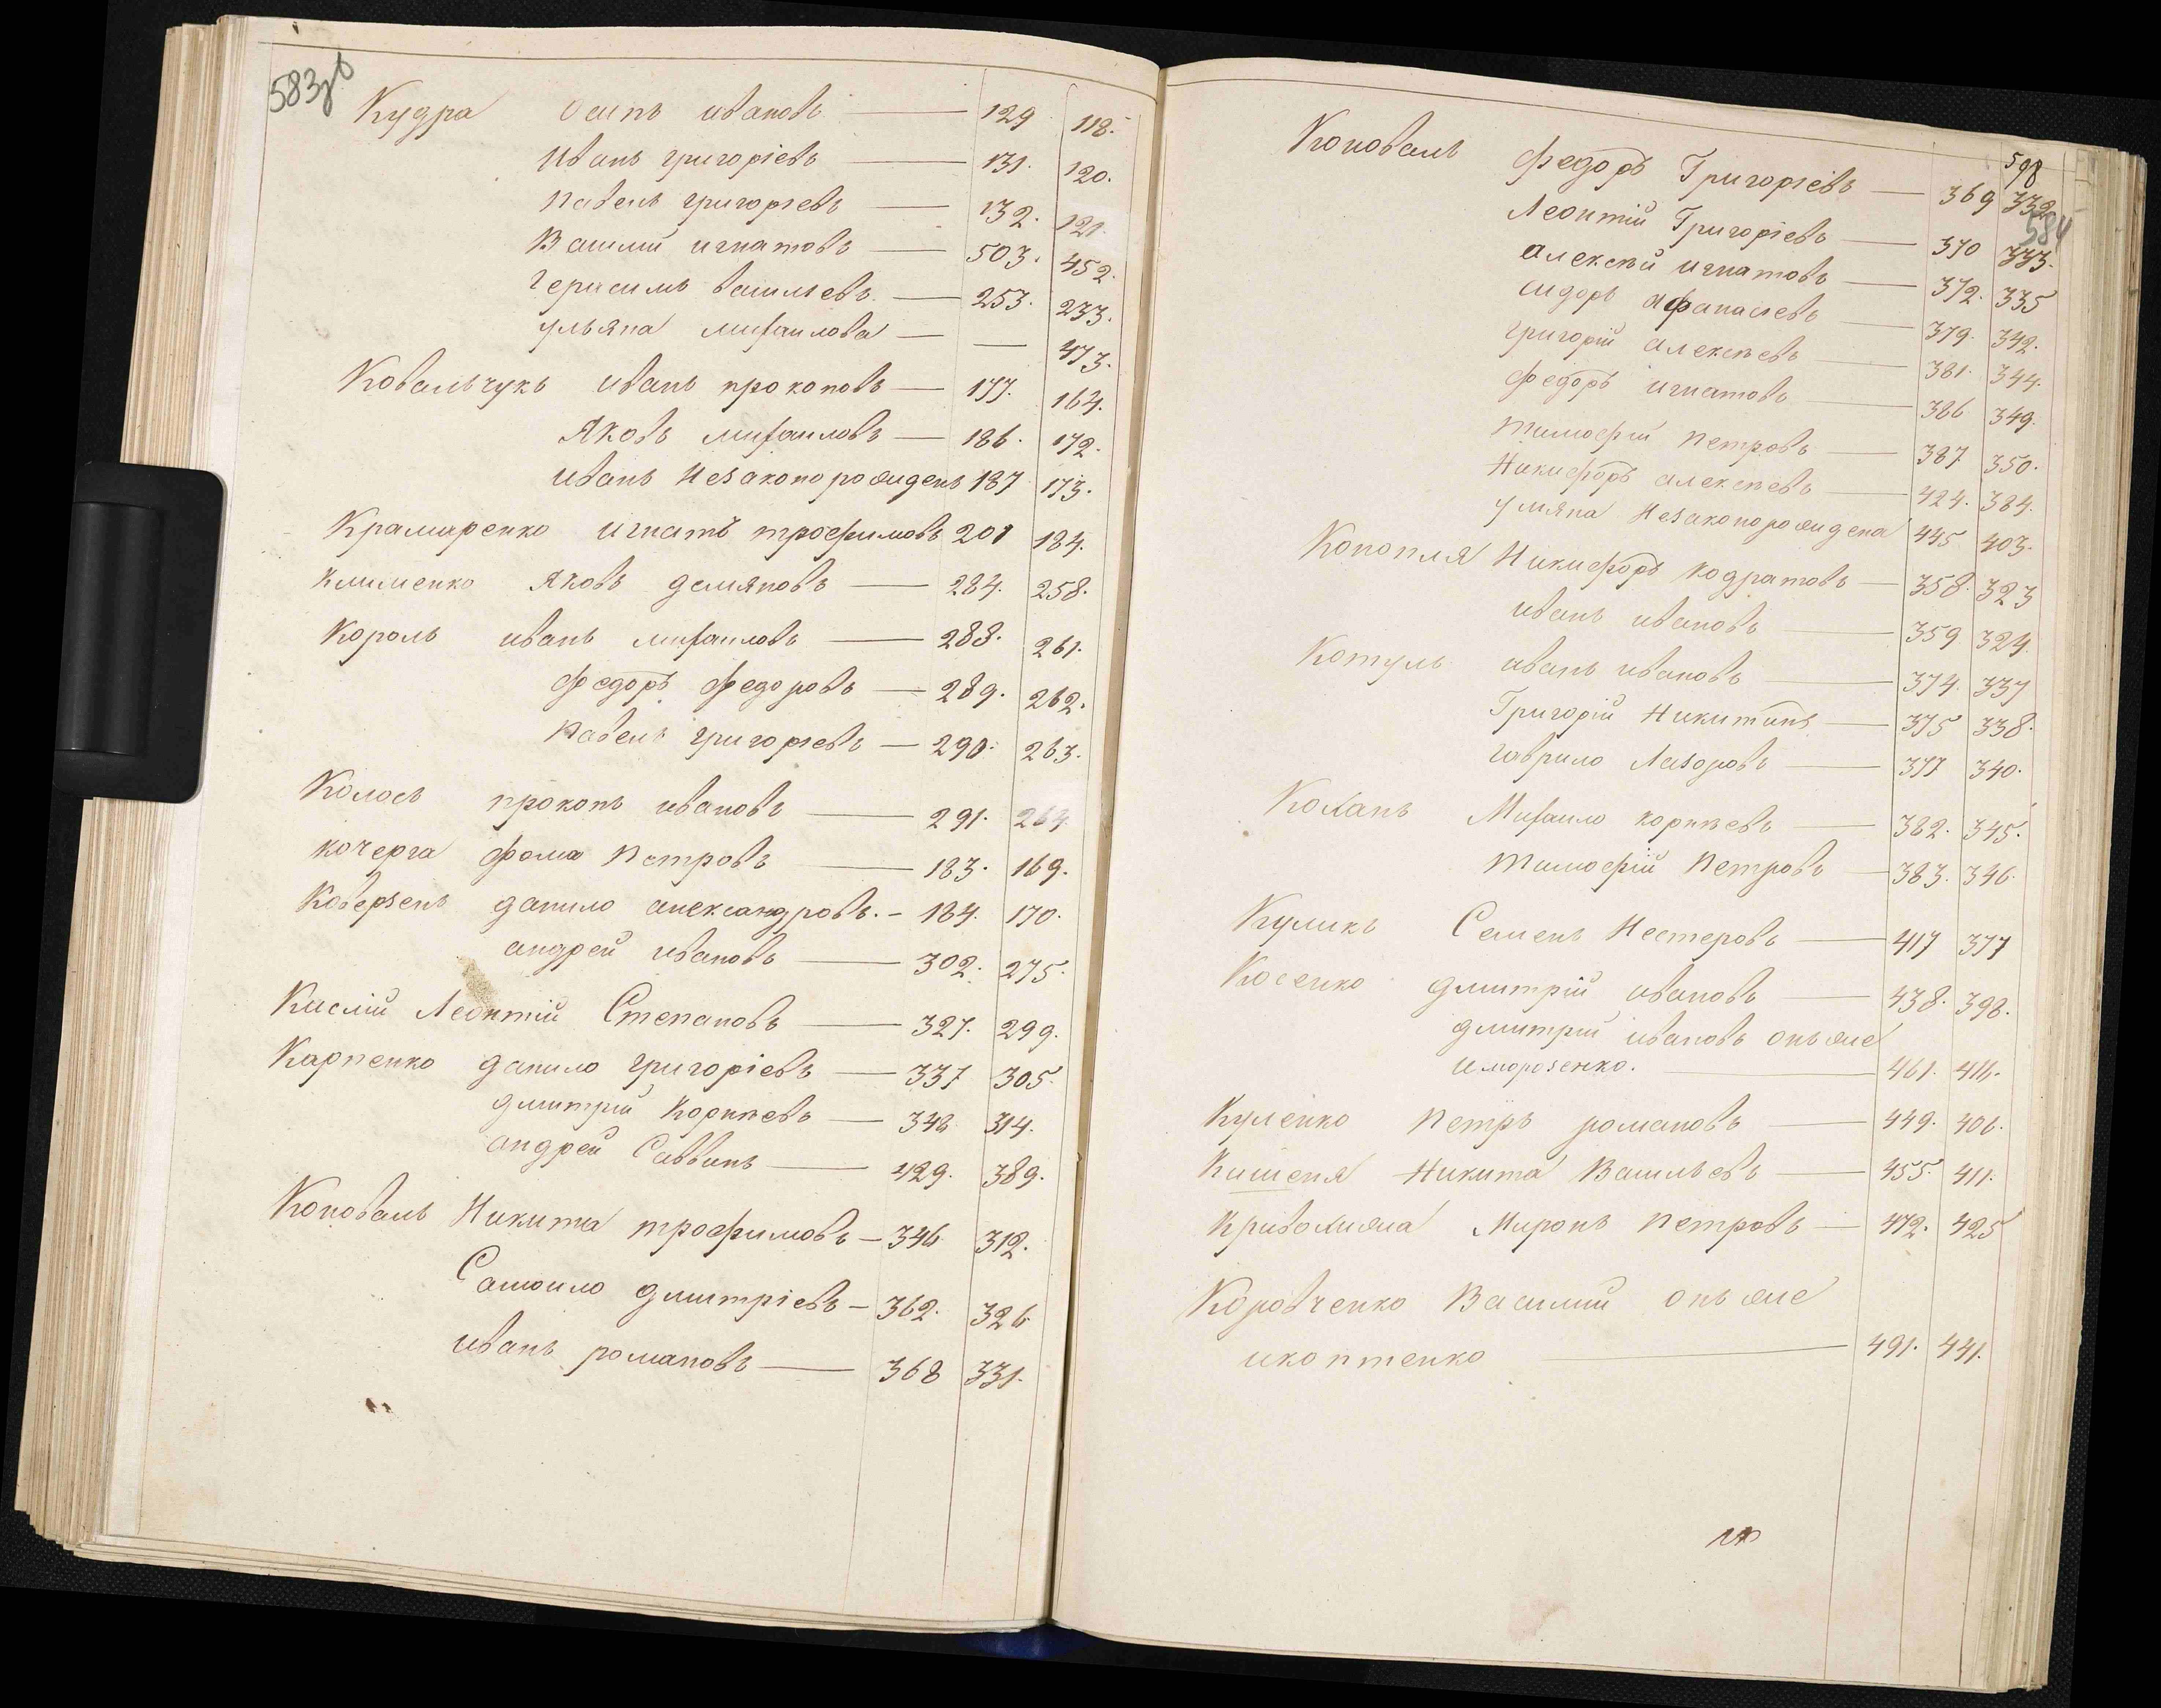 583 зв
Кудра Осипъ ивановъ — 129 118.
иванъ григоріевъ — 131. 120.
павелъ григоріевъ — 132. 121.
Василій игнатовъ — 503. 452.
Герасимъ васильевъ — 253. 233.
ульяна михаилова — — 473.
Ковальчукъ иванъ прокоповъ — 177. 164.
Яковъ михаиловъ — 186. 172.
иванъ незаконорожденъ 187 173.
Крамаренко игнатъ трофимовъ 201 184.
Клименко яковъ демяновъ — 284. 258.
Король иванъ михаиловъ — 288. 261.
федоръ федоровъ — 289. 262.
павелъ григоріевъ — 290. 263.
Колосъ прокопъ ивановъ — 291. 264
кочерга фома петровъ — 183. 169.
Коверзенъ данило александровъ. — 184. 170.
андрей ивановъ — 302. 275.
Кислій Леонтій Степановъ — 327. 299.
Карпенко данило григоріевъ — 337 305.
дмитрій Корнѣевъ — 348 314.
андрей Саввинъ — 429. 389.
Коноваль Никита трофимовъ — 346 312.
Самоило дмитріевъ — 362. 326
иванъ романовъ — 368 331.
598
584
Коноваль федоръ Григоріевъ — 369 332
Леонтій Григоріевъ — 370 333.
алексѣй игнатовъ — 372. 335
сидоръ афанасіевъ — 379. 342.
григорій алексѣевъ — 381. 344.
федоръ игнатовъ — 386 349.
тимофій петровъ — 387 350.
Никифоръ алексѣевъ — 424. 384.
улияна незаконорождена 445 403.
Конопля Никифоръ кодратовъ — 358. 323
иванъ ивановъ — 359 324.
Котуль иванъ ивановъ — 374. 337
Григорій Никитинъ — 375 338.
гаврило Лазоровъ — 377 340.
Коханъ Михаило корнѣевъ — 382. 345.
тимофій петровъ — 383. 346.
Куликъ Семенъ Нестеровъ — 417 377
Косенко дмитрій ивановъ — 438. 398.
дмитрій ивановъ онъ же
и морозенко. — 461. 416.
Куленко Петръ романовъ — 449. 406.
Кишеня Никита Васильевъ — 455. 411.
Кривохижа Миронъ петровъ — 472. 425
Коровченко Василий онъ же
икоптенко — 491. 441.